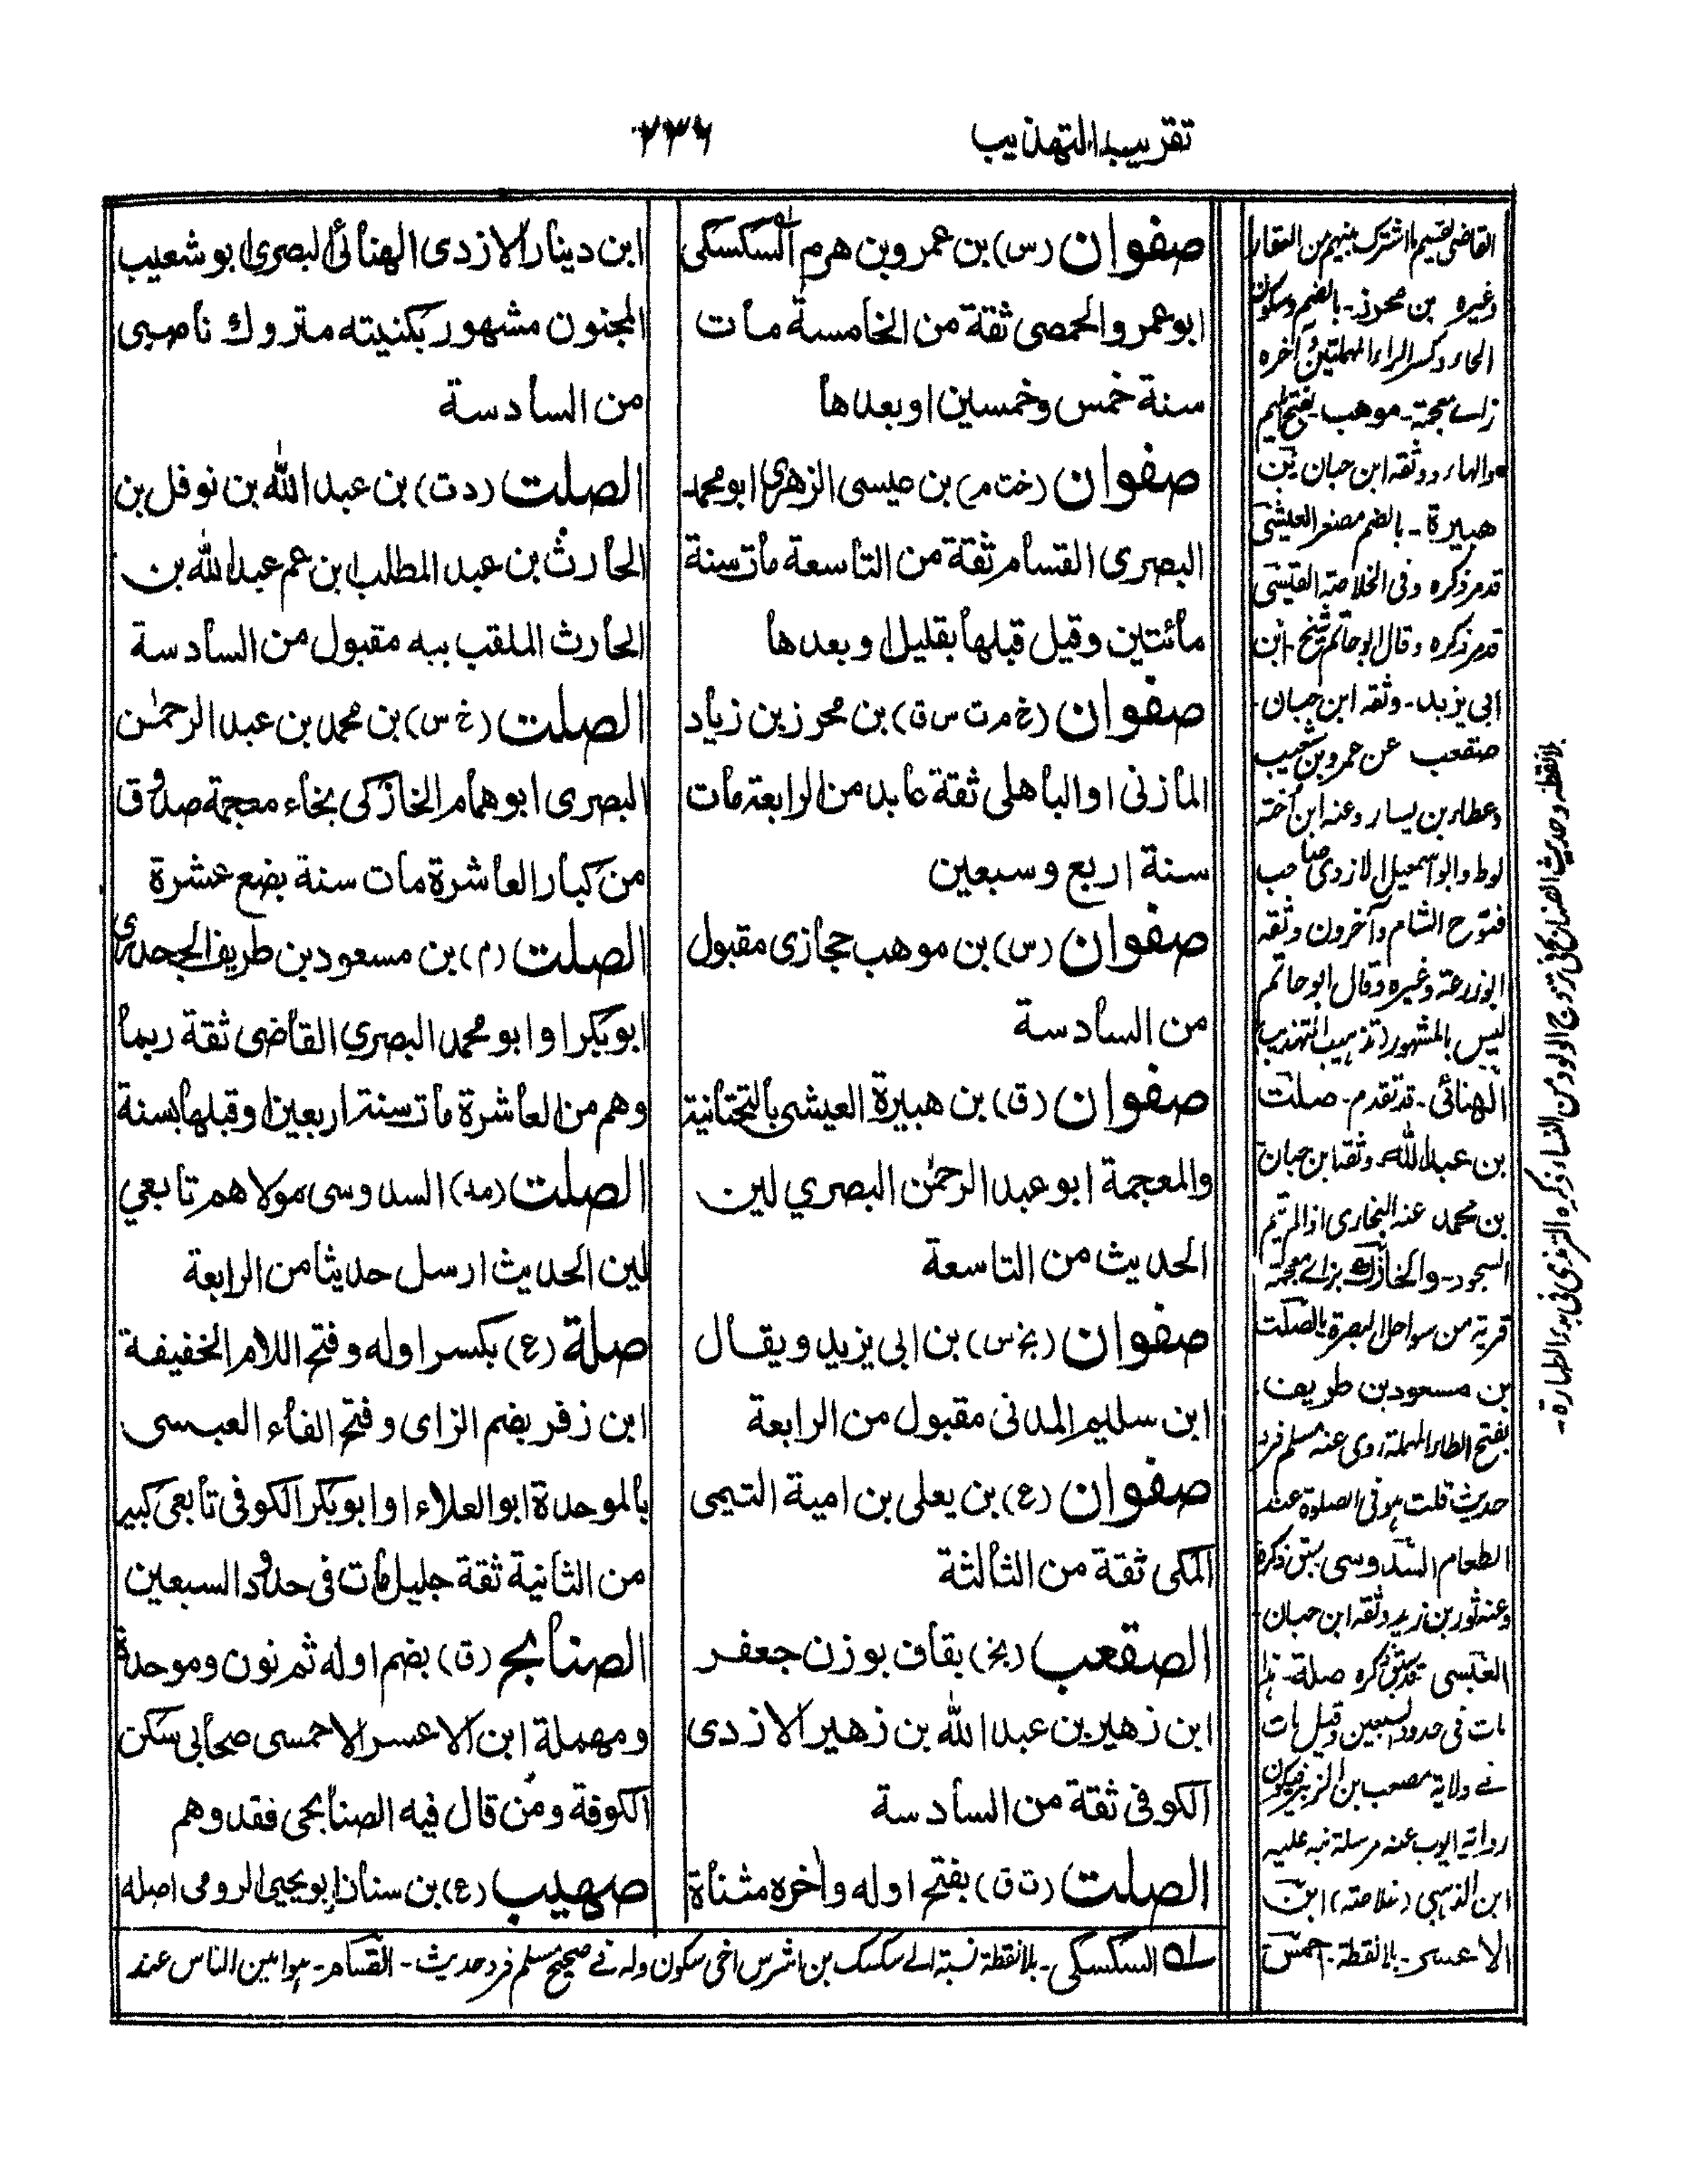 تقريب التهذيب
٢٣٦
صفوان (س) بن عمرو بن هرم السكسكى
ابو عمرو الحمصى ثقة من الخامسة مات
سنة خمس وخمسين او بعدها
صفوان (خت م) بن عيسى الزهرى ابو محمد
البصرى القسام ثقة من التاسعة مات سنة
مائتين وقيل قبلها بقليل او بعدها
صفوان (خ م ت س ق) بن محرز بن زياد
المازنى او الباهلى ثقة عابد من الرابعة مات
سنة اربع وسبعين
صفوان (س) بن موهب حجازى مقبول
من السادسة
صفوان (ق) بن هبيرة العيشى بالتحتانية
والمعجمة ابو عبد الرحمٰن البصري لين
الحديث من التاسعة
صفوان (بخ س) بن ابى يزيد ويقال
ابن سليم المدنى مقبول من الرابعة
صفوان (ع) بن يعلى بن امية التيمى
المكى ثقة من الثالثة
الصقعب (بخ) بقاف بوزن جعفر
ابن زهير بن عبد الله بن زهير الازدى
الكوفى ثقة من السادسة
الصلت (ت ق) بفتح اوله وأخره مثناة
ابن دينار الازدى الهنائى البصرى ابو شعيب
المجنون مشهور بكنيته متروك ناصبى
من السادسة
الصلت (د ت) بن عبد الله بن نوفل بن
الحارث بن عبد المطلب ابن عم عبد الله بن
الحارث الملقب ببه مقبول من السادسة
الصلت (خ س) بن محمد بن عبد الرحمٰن
البصرى ابو همام الخازكى بخاء معجمة صدوق
من كبار العاشرة مات سنة بضع عشرة
الصلت (م) بن مسعود بن طريف الجحدرى
ابو بكر او ابو محمد البصري القاضى ثقة ربما
وهم من العاشرة مات سنة اربعين او قبلها بسنة
الصلت (مد) السدوسى مولاهم تابعي
لين الحديث ارسل حديثا من الرابعة
صلة (ع) بكسر اوله وفتح اللام الخفيفة
ابن زفر بضم الزاى وفتح الفاء العبسى
بالموحدة ابو العلاء او ابو بكر الكوفى تابعى كبير
من الثانية ثقة جليل مات فى حدود السبعين
الصنابح (ق) بضم اوله ثم نون وموحدة
ومهملة ابن الاعسر الاحمسى صحابى سكن
الكوفة ومن قال فيه الصنابحى فقد وهم
صهيب (ع) بن سنان ابو يحيى الرومى اصله
له السكسكى۔ بلا نقطة نسبة الے سكسك بن اشرس اخى سكون وله نے صحيح مسلم فرد حديث۔ القسام۔ ہو امين الناس عند
القاضى لقسيم ما اشترك بينهم من العقار
وغيره بن محرز۔ بالضم وسكون
الحاء وكسر الراء المهملتين آخره
زاے معجمة۔ موهب۔ بفتح الميم
والهاء ووثقه ابن حبان بن
هبيرة۔ بالضم مصغر العيشى
قد مر ذكره وفى الخلاصة القيسى
قد مر ذكره وقال ابو حاتم شيخ۔ ابن
ابى يزيد۔ وثقه ابن حبان۔
صقعب عن عمرو بن شعيب
وعطاء بن يسار وعنه ابن اخته
لوط وابو اسمعيل الازدى صاحب
فتوح الشام وآخرون وثقه
ابو زرعة وغيره وقال ابو حاتم
ليس بالمشهور (تذهيب التهذيب)
الهنائى۔ قد تقدم۔ صلت
بن عبد الله۔ وثقه ابن حبان
بن محمد عنه البخارى اذا لم يتم
السجود۔ والخازكى بزاے معجمة
قرية من سواحل البصرة الصلت
بن مسعود بن طريف۔
بفتح الطاء المهملة روى عنه مسلم فرد
حديث قلت ہو فى الصلوة عند
الطعام السدوسى سبق ذكره
وعنه ثور بن زيد وثقه ابن حبان۔
العبسى قد سبق ذكره صلة۔ ہذا
مات فى حدود السبعين وقيل مات
نے ولاية مصعب بن الزبير فيكون
رواية ايوب عنه مرسلة نبه عليه
ابن الذهبى (خلاصة) ابن
الاعسر۔ بلا نقطة۔ احمس
بلا نقطه وحديث الصنابحى فى تزوج الولود من النساء ذكره الترمذى فى ابواب الطهارة۔